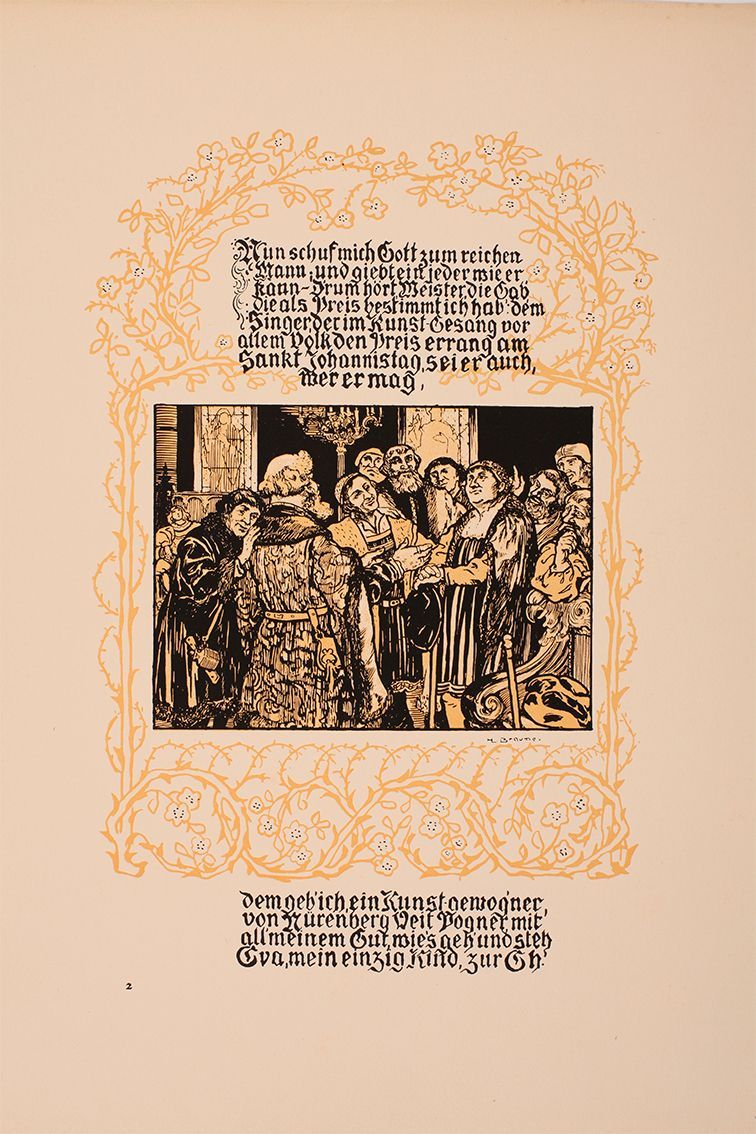 Nun schuf mich Gott zum reichen
Mann, und giebt ein jeder wie er
kann- Drum hört Meister, die Gab
die als Preis bestimmt ich hab: dem
Singer der im Kunst-Gesang vor
allem Volk den Preis errang am
Sankt Johannistag, sei er auch,
wer er mag,
H Braune.
dem geb' ich, ein Kunst-gewog'ner,
von Nürenberg Veit Pogner, mit
all' meinem Gut, wie's geh' und steh'
Eva, mein einzig Kind, zur Eh'
2